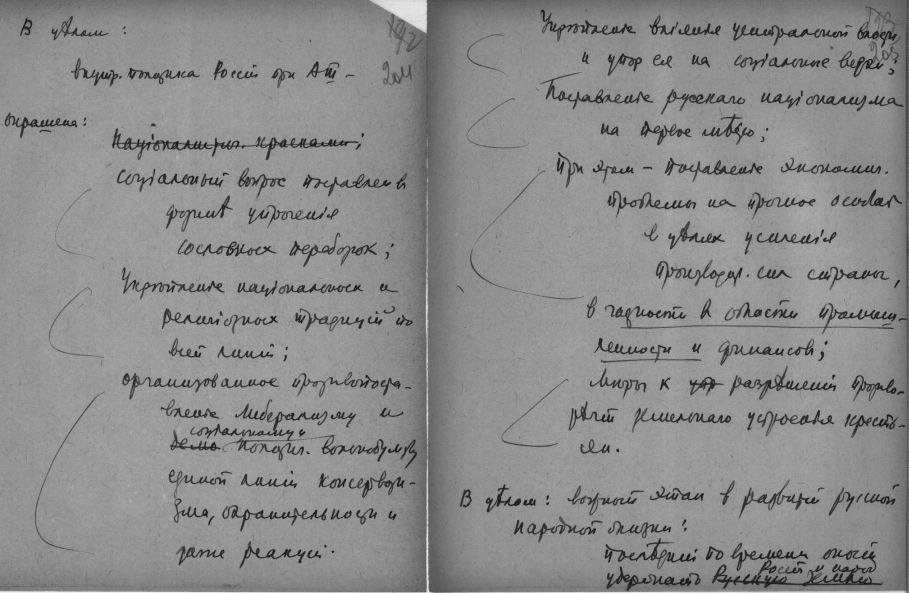 В цѣлом:
204
внутр. политика Россіи при АIII –
окрашена:
Націоналистич. красками;
Соціальный вопрос поставлен в
формѣ упроченія
сословных переборок;
Укрѣпленіе національных и
религіозных традицій по
всей линіи;
организованное противопоста-
вленіе либерализму и
соціальному и
демо политич. вольнодумству
единой линіи консерватив-
зма, охранительности и
даже реакціи.
Укрѣпленіе вліянія центральной власти
205
и упор ея на соціальные верхи;
Поставленіе русскаго націонализма
на первое мѣсто;
При этом – поставленіе экономич.
проблемы на прочное основаніе
в цѣлях усиленія
производит. сил страны,
в частности в области промыш-
ленности и финансов;
Мѣры к разрѣшенію противо-
рѣчій земельнаго устроенія кресть-
ян.
В цѣлом: важный этап в развитіи русской
народной жизни:
послѣдній по времени опыт
Россію и народ
удержать Русскую Землю